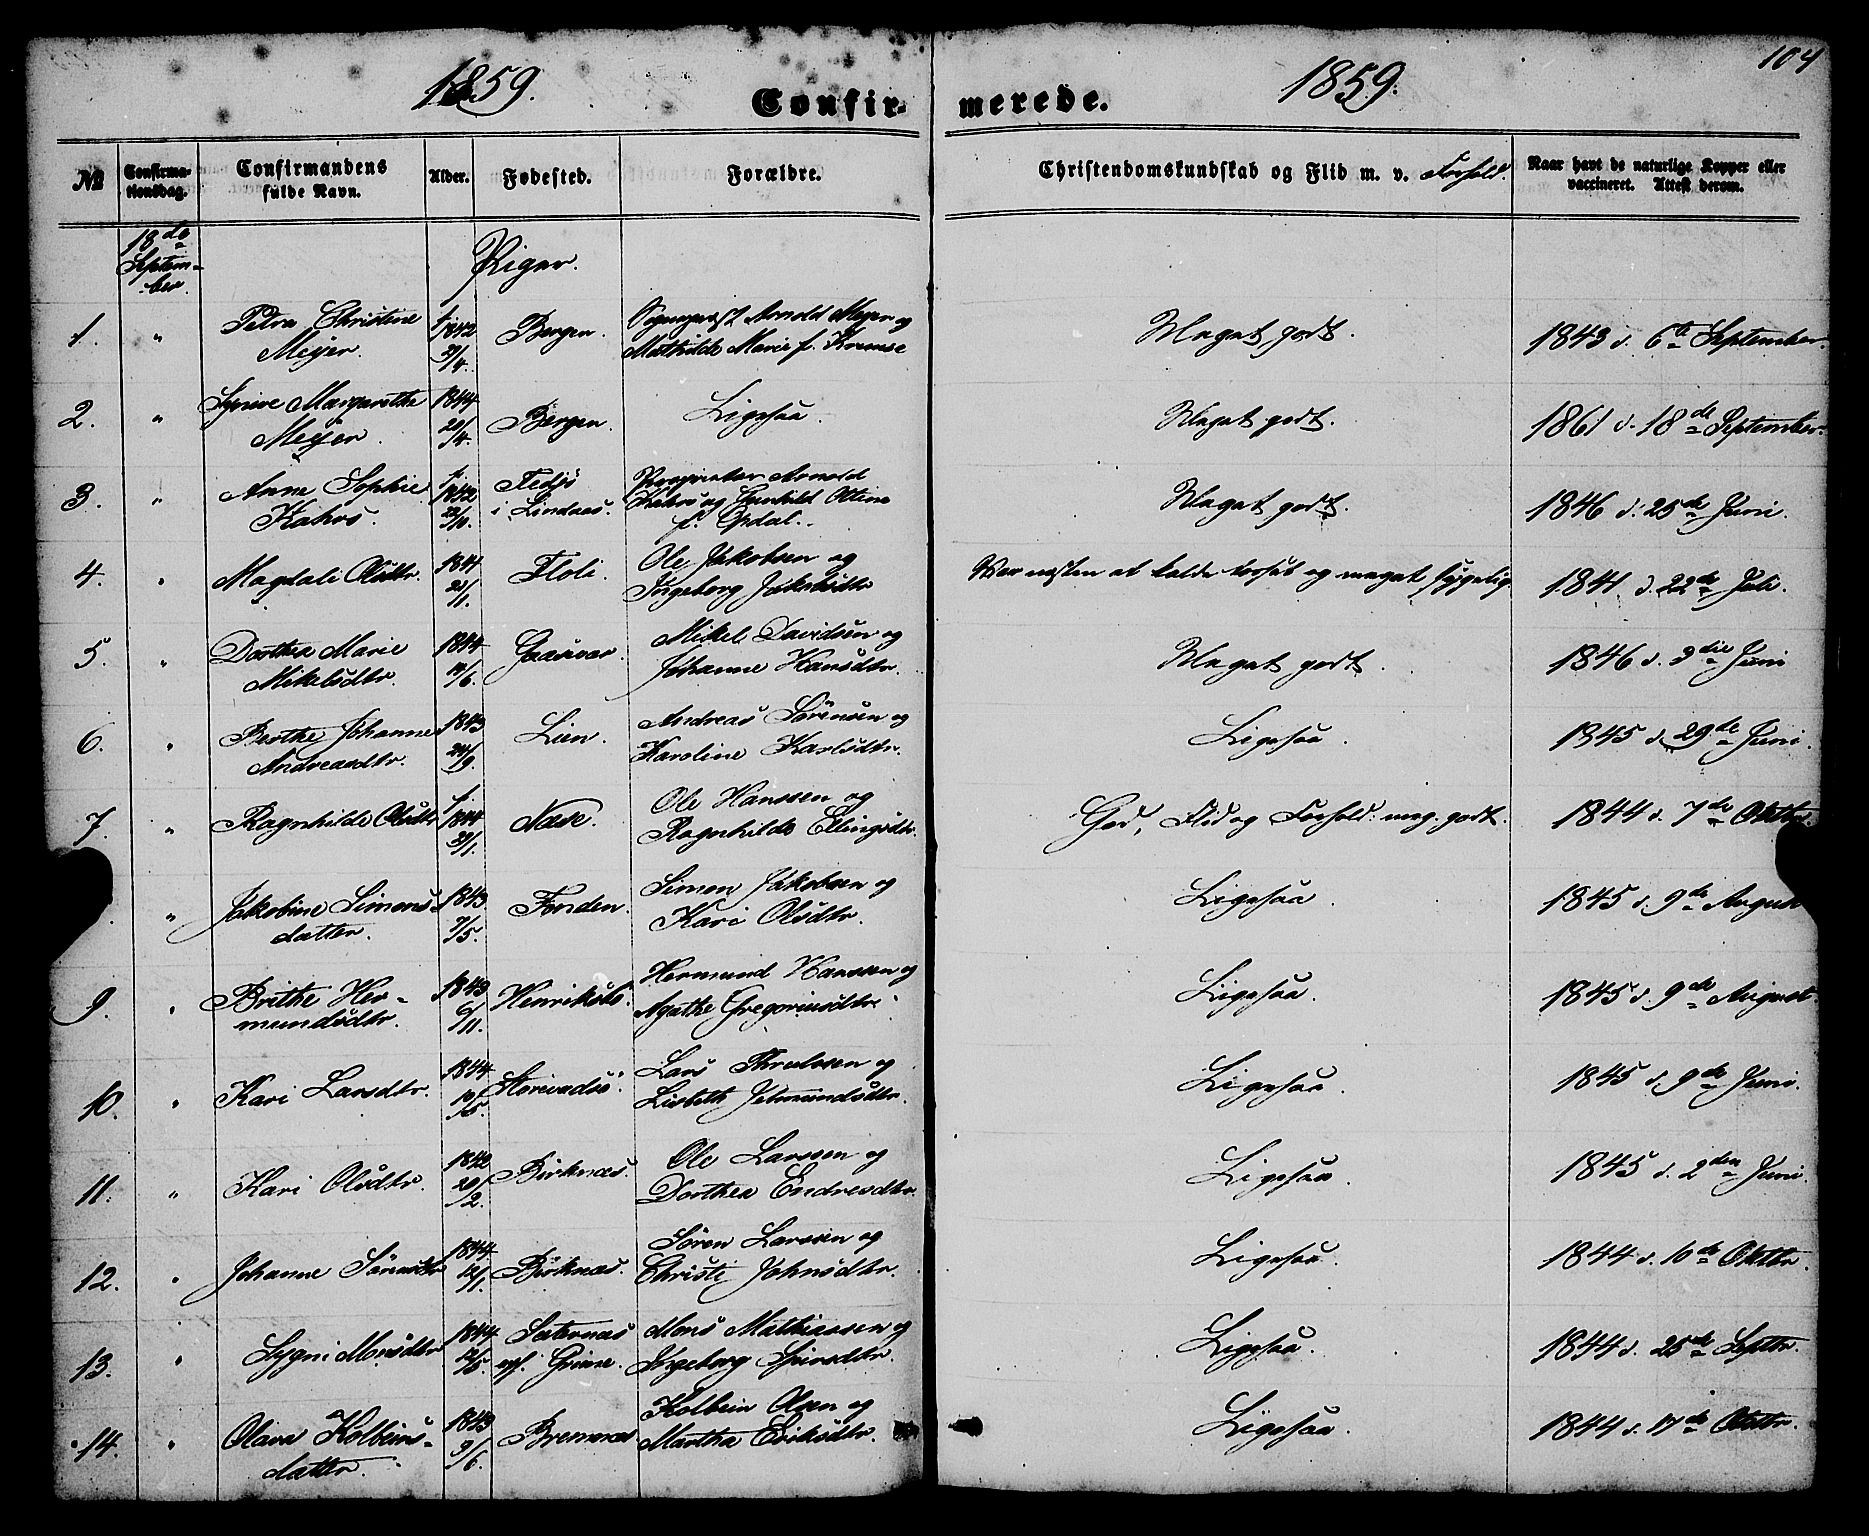 104
1859. Confir-
merede. 1859.
№ Confirma-tionsdag. Confirmandens fulde Navn. Alder. Fødested. Forældre. Christendomskundskab og Flid m. v. Forhold. Naar havt de naturlige Kopper eller vaccineret. Attest derom.
18de September Piger.
1. " Petra Christine Meyer. f. 1842 29/4. Bergen. Sognepræst Arnold Meyer og Mathilde Marie f. Meget godt. 1843 d. 6te September.
2. " Margrethe Meyer. 1844 20/4. Bergen. Ligesaa. Meget godt. 1861 d. 18de September.
3. " Anne Sophie Kahrs. f. 1842 23/10. Fedjö i Lindaas. Proprietær Arnold Kahrs og Gunhild Oline f. Opdal. Meget godt. 1846 d. 25de Juni.
4. " Magdali Olsdtr. 1841 21/1. Floli. Ole Jakobsen og Ingeborg Jakobsdtr. Var næsten at kalde og meget sygelig. 1841 d. 22de Juli.
5. " Dorthea Marie Mikelsdtr. 1844 19/6. Gaasvær. Mikel Davidsen og Johanne Hansdtr. Meget godt. 1846 d. 3die Juni
6. " Berthe Johanne Andreasdtr. 1843 24/9. Lien. Andreas Sørensen og Karoline Karlsdtr. Ligesaa. 1845 d. 29de Juni.
7. " Ragnhilde Olsdtr. f. 1844 29/1. Næse. Ole Hanssen og Ragnhilde Ellingsdtr. God, Flid og Forhold: meg. godt. 1844 d. 7de Oktbr.
" Jakobine Simonsdatter. 1843 7/5. Fonden. Simon Jakobsen og Kari Olsdtr. Ligesaa. 1845 d. 9de August
9. " Brithe Hermundsdtr. 1843 6/11. Henriksbö. Hermund Hanssen og Agathe Gregoriusdtr. Ligesaa. 1845 d. 9de August.
10. " Kari Larsdtr. 1844 19/5. Lars Thrulssen og Lisbeth Jetmundsdtr. Ligesaa. 1845 d. 9de Juni.
11. " Kari Olsdtr. 1842 20/2. Birknæs. Ole Larssen og Dorthea Endresdtr. Ligesaa. 1845 d. 2den Juni.
12. " Johanne Sørensdtr. 1844 12/1. Birknæs. Søren Larssen og Christi Johnsdtr. Ligesaa. 1844 d. 10de Oktbr.
13. " Sygni Monsdtr. 1844 12/5. Sæternæs Mons Mathiassen og Ingeborg Ligesaa. 1844 d. 25de Septbr.
14. " Olava Kolbeinsdatter. 1843 9/6. Bremnæs. Kolbein Olsen og Martha Eriksdtr. Ligesaa. 1844 d. 17de Oktbr.